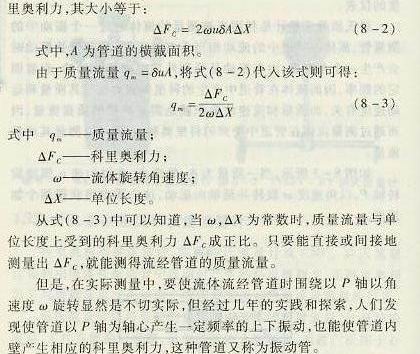 里奥利力,其大小等于:
ΔF_C = 2ωuδAΔX (8-2)
式中,A 为管道的横截面积。
由于质量流量 q_m = δuA,将式(8-2)代入该式则可得:
q_m = ΔF_C / 2ωΔX (8-3)
式中 q_m——质量流量;
ΔF_C——科里奥利力;
ω——流体旋转角速度;
ΔX——单位长度。
从式(8-3)中可以知道,当 ω,ΔX 为常数时,质量流量与单
位长度上受到的科里奥利力 ΔF_C 成正比。只要能直接或间接地
测量出 ΔF_C,就能测得流经管道的质量流量。
但是,在实际测量中,要使流体流经管道时围绕以 P 轴以角
速度 ω 旋转显然是不切实际,但经过几年的实践和探索,人们发
现使管道以 P 轴为轴心产生一定频率的上下振动,也能使管道内
壁产生相应的科里奥利力,这种管道又称为振动管。